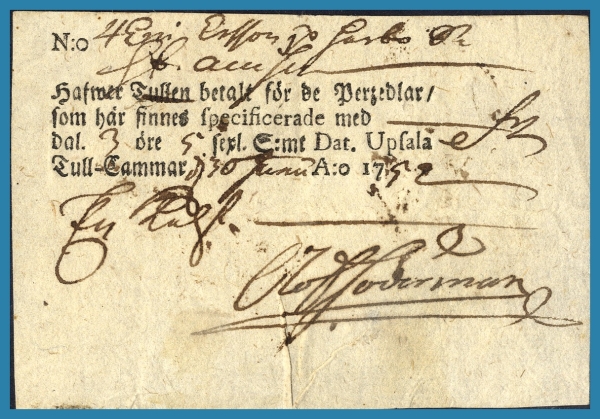 N:o 4 Eric Ersson
Hafwer Tullen betalt för de Perzedlar/
som här finnes specificerade med
dal. 3 öre 5 sexl. S:mt Dat. Upsala
Tull-Cammar d 30 Junii A:o 1752
En Kalf.
Olof Söderman